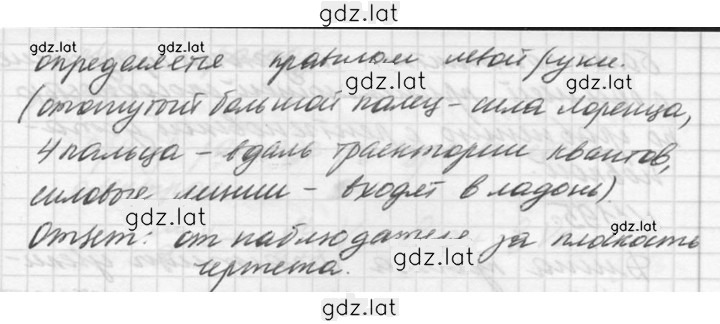 gdz.lat
gdz.lat gdz.lat
определяется правилом левой руки.
gdz.lat
(отогнутый большой палец - сила Лоренца,
4 пальца - вдоль траектории квантов,
силовые линии - входят в ладонь)
gdz.lat gdz.lat
Ответ: от наблюдателя за плоскость
чертежа.
gdz.lat
gdz.lat